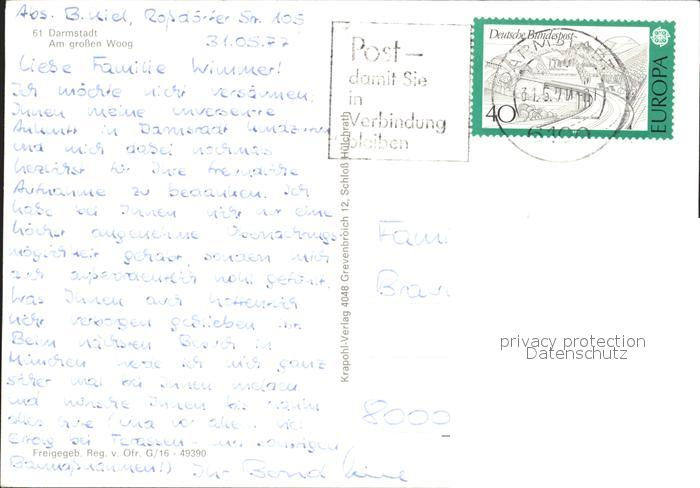 Abs. B. Kiel, Roßdörfer Str. 105
61 Darmstadt
Am großen Woog
31.05.77
Liebe Familie Wimmer!
Ich möchte nicht versäumen,
Ihnen meine unversehrte
Ankunft in Darmstadt
und mich dabei nochmals
herzlichst für Ihre freundliche
Aufnahme zu bedanken. Ich
habe bei Ihnen nicht nur eine
höchst angenehme Übernachtungs
möglichkeit gehabt, sondern mich
auch außerordentlich wohl gefühlt.
Was Ihnen auch hoffentlich
nicht verborgen geblieben ist.
Beim nächsten Besuch in
München werde ich mich ganz
sicher mal bei Ihnen melden
und wünsche Ihnen bis dahin
alles Gute (und vor allem viel
Erfolg bei Terassen- und sonstigen
Baumaßnahmen!) Ihr Bernd
Freigegeb. Reg. v. Ofr. G/16 - 49390
Krapohl-Verlag 4048 Grevenbroich 12, Schloß Hülchrath
Post-
damit Sie
in
Verbindung
bleiben
Deutsche Bundespost
40
EUROPA
DARMSTADT
31.5.77
6100
Fami
8000
privacy protection
Datenschutz